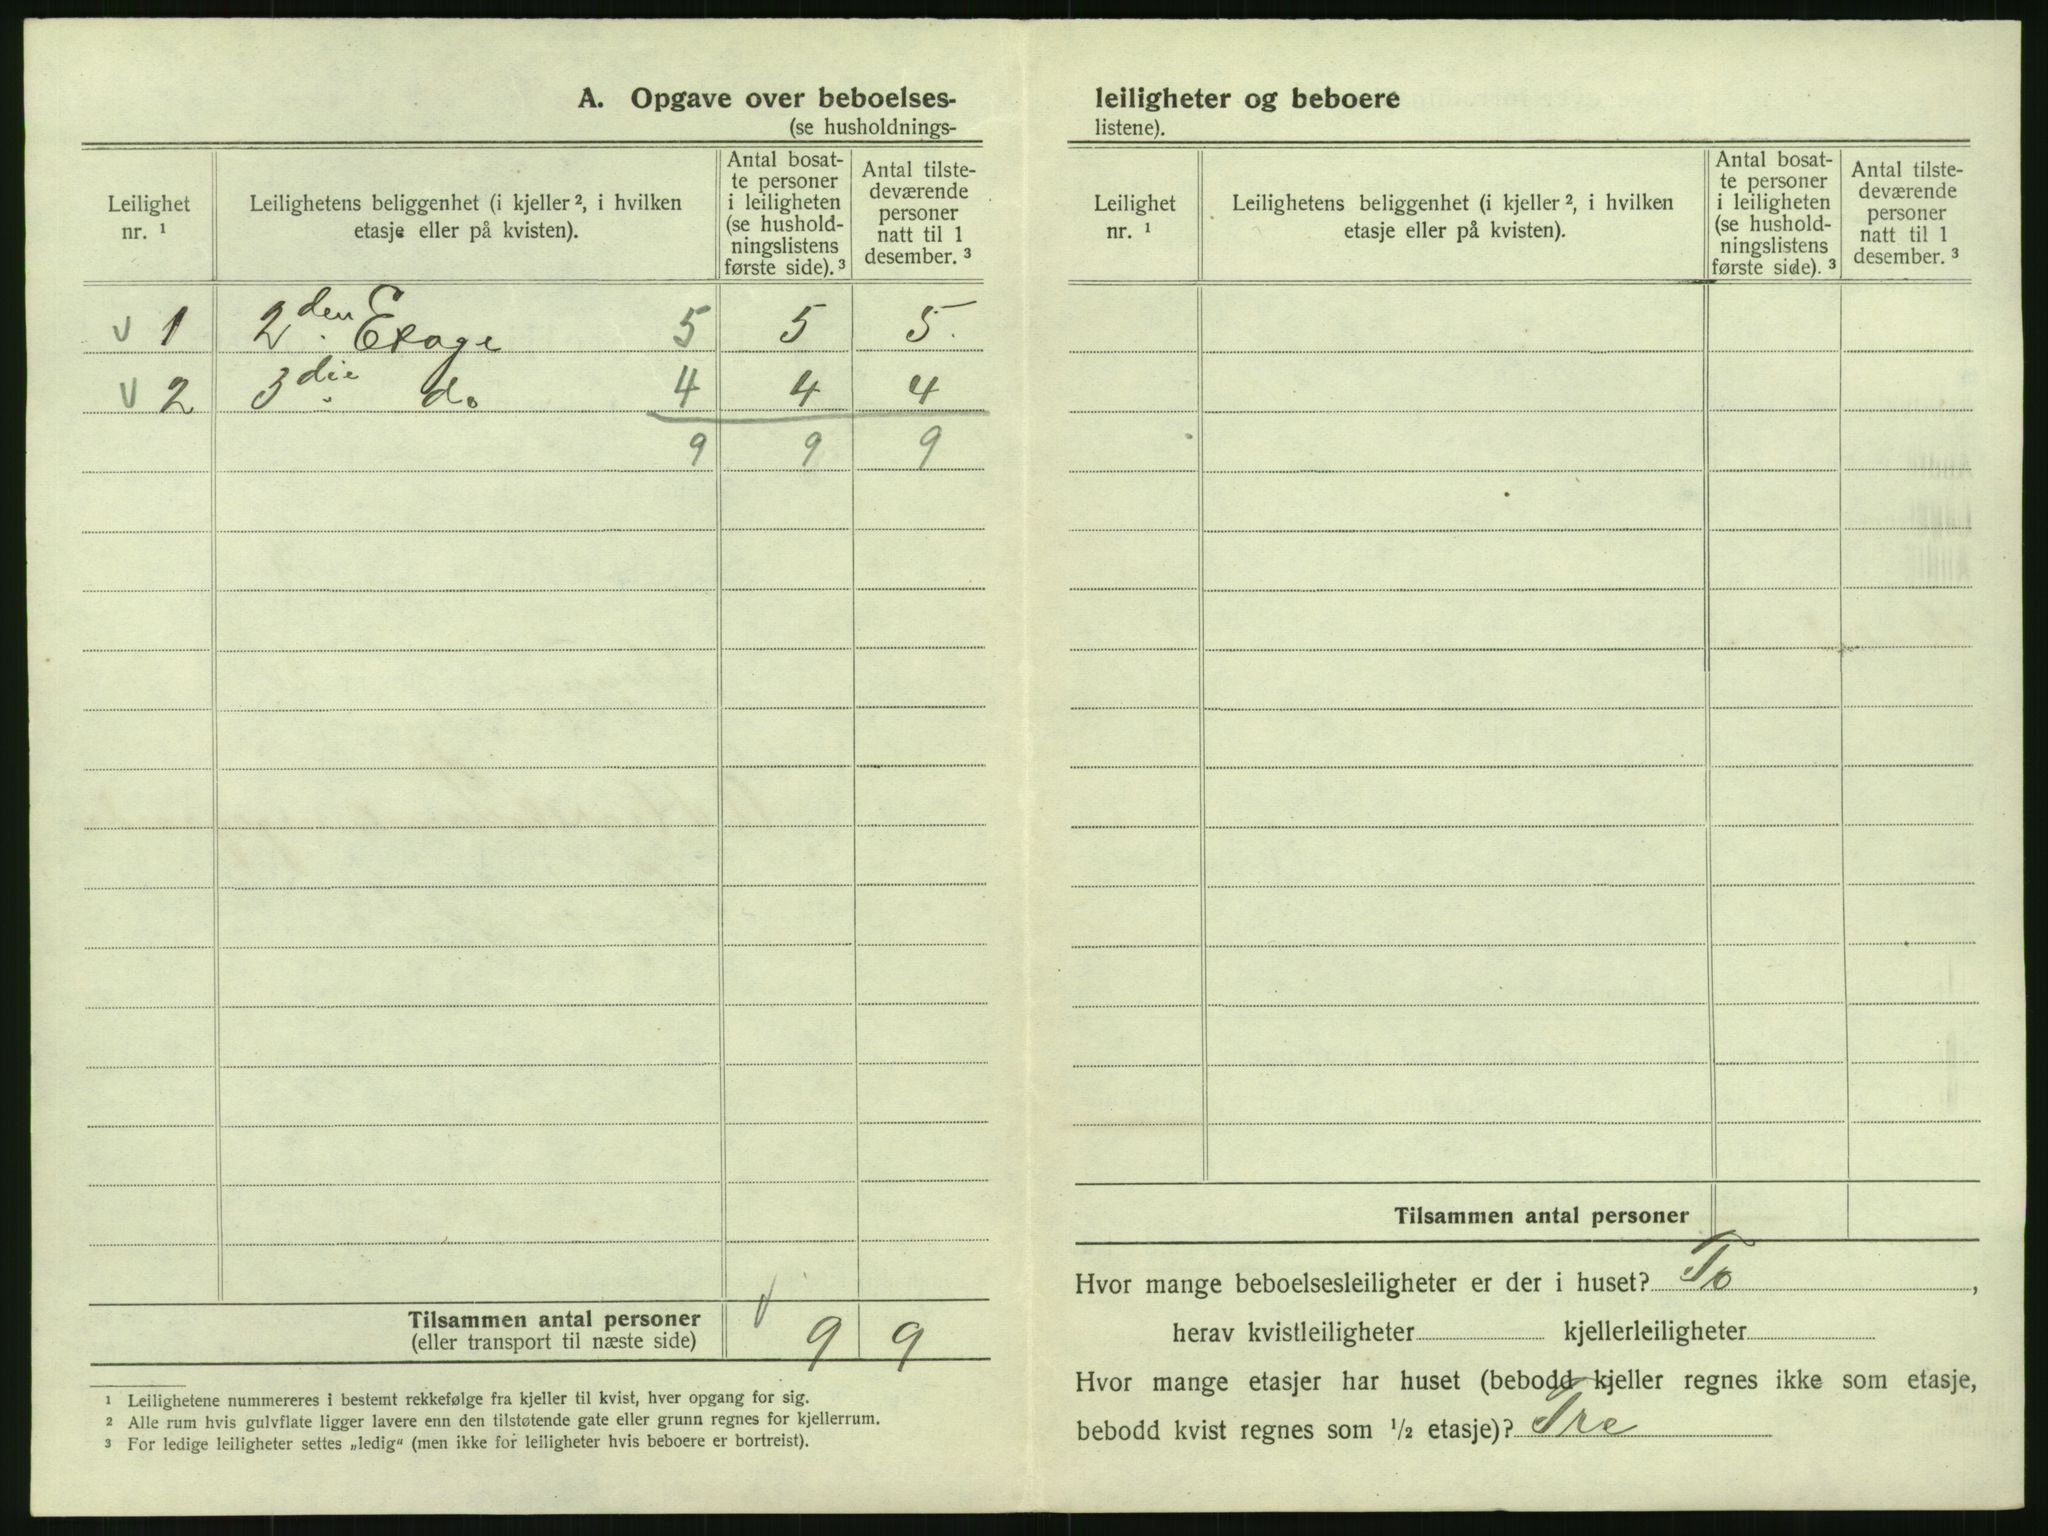 A. Opgave over beboelses-
(se husholdnings-
Leilighet
nr. ¹
Leilighetens beliggenhet (i kjeller ², i hvilken
etasje eller på kvisten).
Antal bosat-
te personer
i leiligheten
(se hushold-
ningslistens
første side). ³
Antal tilste-
deværende
personer
natt til 1
desember. ³
v 1 2den Etage 5 5 5.
v 2 3die do 4 4 4
9 9 9
Tilsammen antal personer
(eller transport til næste side)
v 9 9
¹ Leilighetene nummereres i bestemt rekkefølge fra kjeller til kvist, hver opgang for sig.
² Alle rum hvis gulvflate ligger lavere enn den tilstøtende gate eller grunn regnes for kjellerrum.
³ For ledige leiligheter settes „ledig“ (men ikke for leiligheter hvis beboere er bortreist).
leiligheter og beboere
listene).
Leilighet
nr. ¹
Leilighetens beliggenhet (i kjeller ², i hvilken
etasje eller på kvisten).
Antal bosat-
te personer
i leiligheten
(se hushold-
ningslistens
første side). ³
Antal tilste-
deværende
personer
natt til 1
desember. ³
Tilsammen antal personer
Hvor mange beboelsesleiligheter er der i huset? To,
herav kvistleiligheter kjellerleiligheter
Hvor mange etasjer har huset (bebodd kjeller regnes ikke som etasje,
bebodd kvist regnes som ½ etasje)? Tre